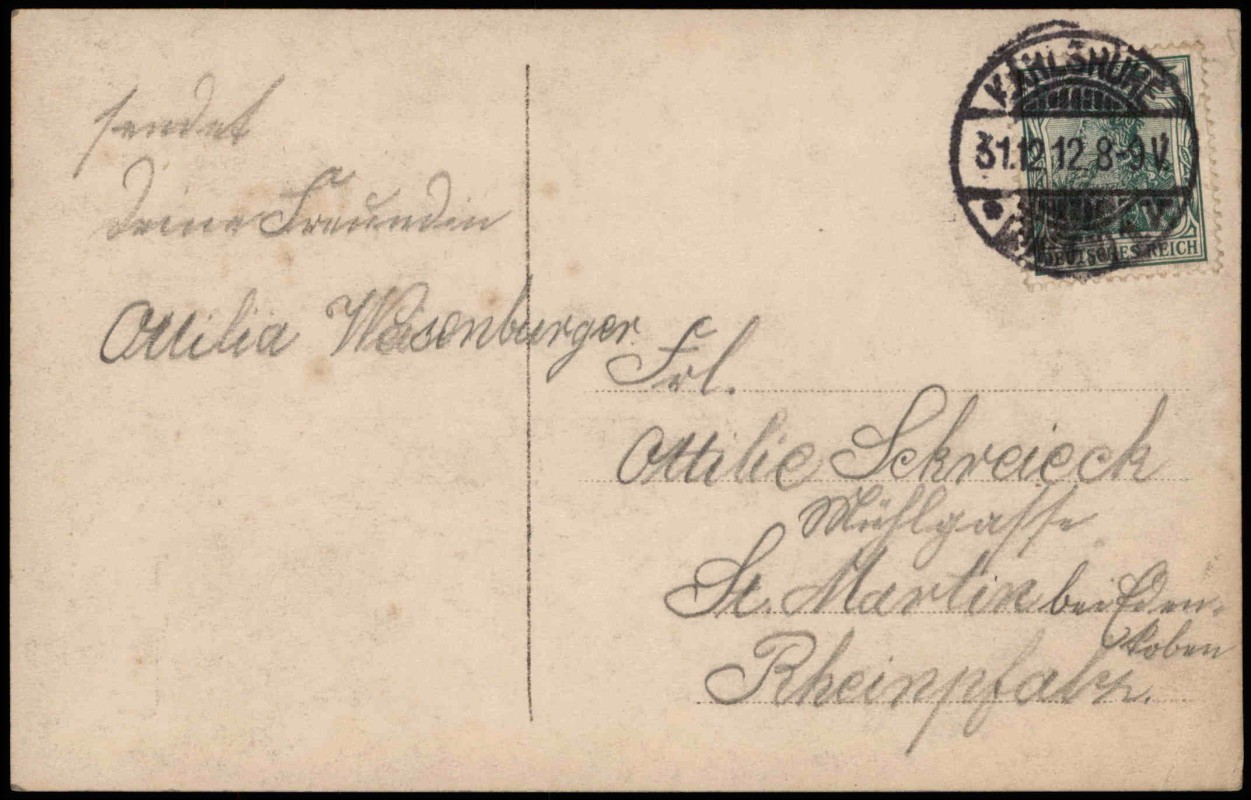 sendet
Deine Freundin
Ottilia Weisenburger.
KARLSRUHE
31.12.12.8-9V.
DEUTSCHES REICH
Frl.
Ottilie Schreieck
Mühlgasse
St. Martin bei Eden-
koben
Rheinpfalz.